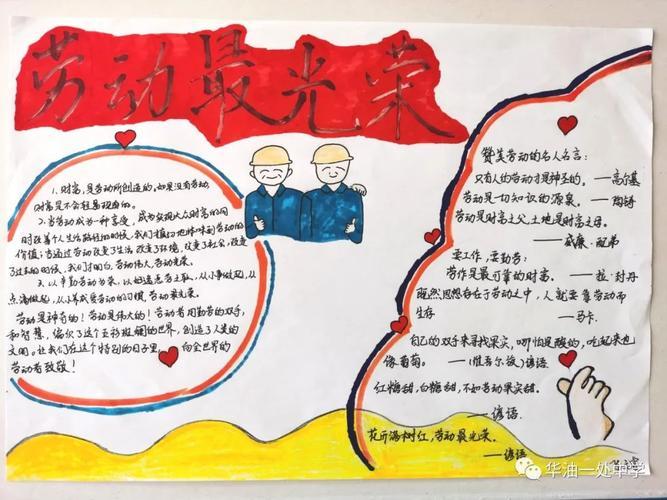 劳动最光荣
1. 财富,是劳动所创造的,如果没有劳动,
财富是不会轻易拥有的。
2. 当劳动成为一种享受,成为实现大众财富的同
时改善个人生活路径的时候,我们真切地体味到劳动的
价值;当通过劳动改变了生活,改变了环境,改变了社会,改变
了过去的时候,我们才明白,劳动伟大,劳动光荣。
3. 以辛勤劳动为荣,以好逸恶劳之耻,从小事做起,从
点滴做起,从小养成爱劳动的习惯,劳动最光荣。
劳动是神奇的!劳动是伟大的!劳动者用勤劳的双手
和智慧,编织了这个五彩斑斓的世界,创造了人类的
文明。让我们在这个特别的日子里,向全世界的
劳动者致敬!
赞美劳动的名人名言:
只有人的劳动才是神圣的。——高尔基
劳动是一切知识的源泉。——陶铸
劳动是财富之父,土地是财富之母。
——威廉·配第
要工作,要勤劳:
劳作是最可靠的财富。——拉·封丹
既然思想存在于劳动之中,人就要靠劳动而
生存 ——马卡.
自己的双手来寻找果实,哪怕是酸的,吃起来也
像葡萄。——(维吾尔族)谚语
红糖甜,白糖甜,不如劳动果实甜。
——谚语.
花开满树红,劳动最光荣。
——谚语
华油一处中学